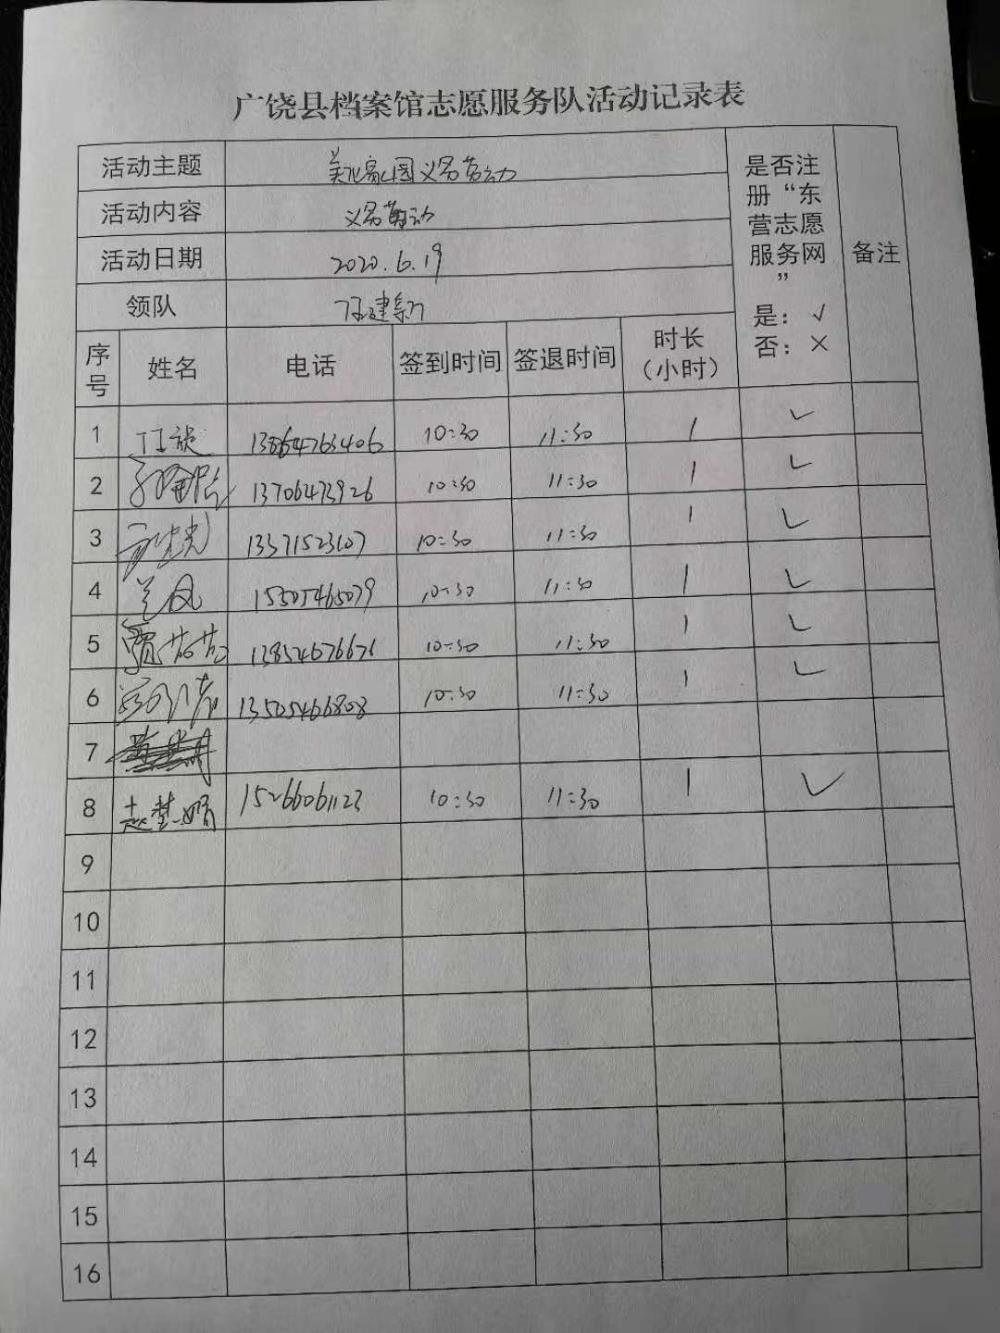 广饶县档案馆志愿服务队活动记录表
活动主题 美化家园义务劳动
活动内容 义务劳动
活动日期 2020.6.19
领队 建新
是否注册“东营志愿服务网”
是：√
否：×
备注
序号 姓名 电话 签到时间 签退时间 时长（小时）
1 13864763406 10:30 11:30 1 ✓
2 13706473926 10:30 11:30 1 ✓
3 13371523107 10:30 11:30 1 ✓
4 兰凤 15505465079 10:30 11:30 1 ✓
5 贾芸芸 13854676671 10:30 11:30 1 ✓
6 13505466808 10:30 11:30 1 ✓
7
8 赵楚娟 15266061123 10:30 11:30 1 ✓
9
10
11
12
13
14
15
16